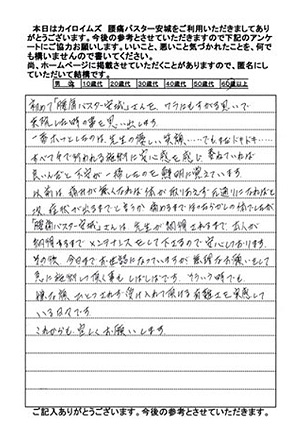 本日はカイロイムズ 腰痛バスター安城をご利用いただきましてあり
がとうございます。今後の参考とさせていただきますので下記のアンケ
ートにご協力お願いします。いいこと、悪いこと気づかれたことを、何で
も構いませんので書いてください。
尚、ホームページに掲載させていただくことがありますので、匿名にし
ていただいて結構です。
男 10歳代 20歳代 30歳代 40歳代 50歳代 60歳以上
初めて「腰痛バスター安城」さんを、ワラにもすがる思いで
来院した時の事を思い出します。
一番ホッとしたのは、先生の優しい笑顔……でもまだドキドキ……
すべて手で行われる施術に気を感じ
良いんだと不安が一掃したのを鮮明に覚えています。
以前は痛みが無くなれば体が取りあえず元通りになればと
次、症状が出るまでと言うか痛むまでほったらかしの体でしたが
「腰痛バスター安城」さんは、先生が納得されるまで、本人が
納得するまでメンテナンスをして下さるので安心しております。
その後、今日までお世話になっていますが無理なお願いをして
急に施術して頂く事もしばしばです。そういう時でも
嫌な顔ひとつされず受け入れて頂ける有難さを実感して
いる日々です
これからも宜しくお願いします。
ご記入ありがとうございます。今後の参考とさせていただきます。